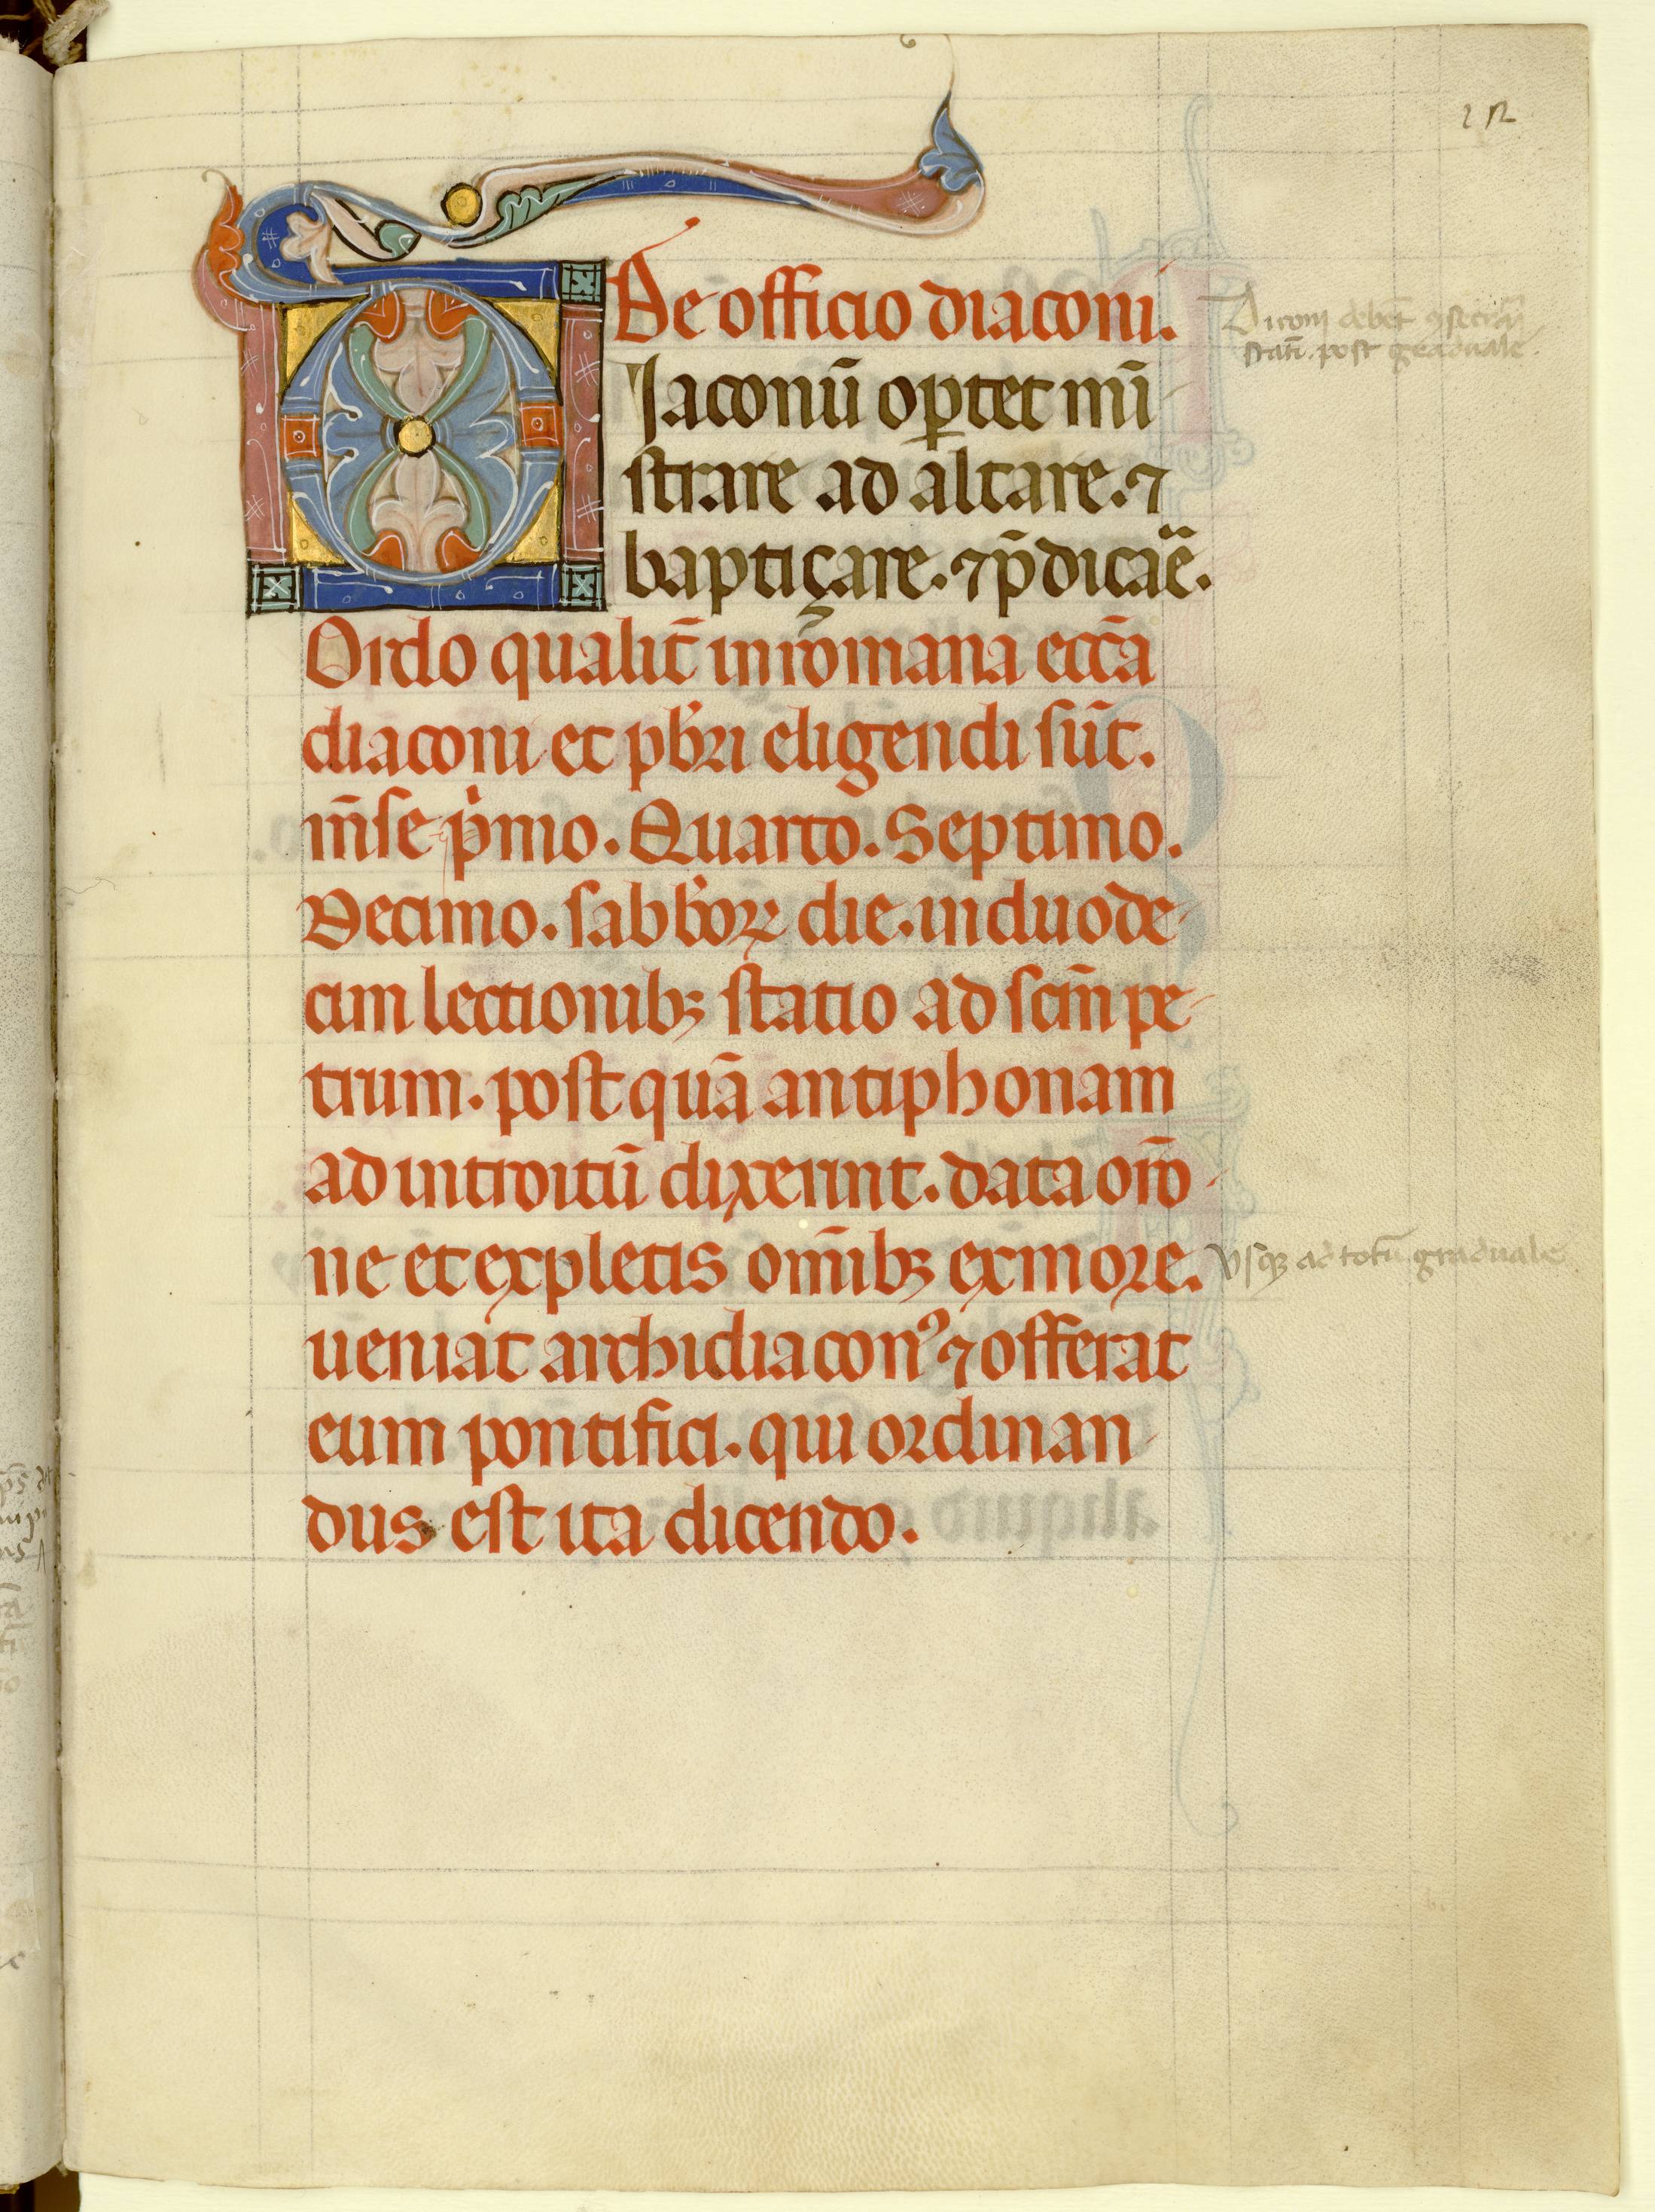 De officio diaconi.
Diaconū oꝑtet mī
strare ad altare. ⁊
baptiçare. ⁊ p̄dicar̄e.
Ordo qualit̄ in romana eccl̄a
diaconi et pb̄ri eligendi sūt.
m̄se p̍mo. Quarto. Septimo.
Decimo. sabb̄oꝝ die. in duode
cim lectionibꝫ statio ad scm̄ pe
trum. post quā antiphonam
ad introitū dixerint. data or̄o
ne et expletis om̄ibꝫ ex more.
ueniat archidiaconꝰ ⁊ offerat
eum pontifici. qui ordinan
dus est ita dicendo.
Diconj debēt ꝯsecrar̄j
stati᷑. post graduale.
Vsqꝫ ad totū graduale.